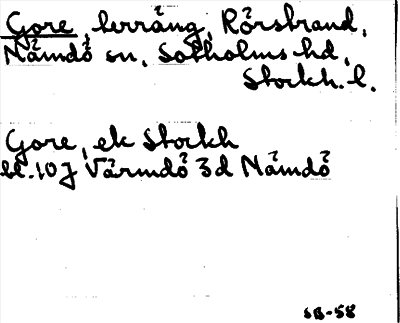 Gore, terräng, Rörsbrand,
Nämdö sn, Sotholms hd,
Stockh. l.
Gore, ek Stockh
bl. 10 J Värmdö 3d Nämdö
SB-58